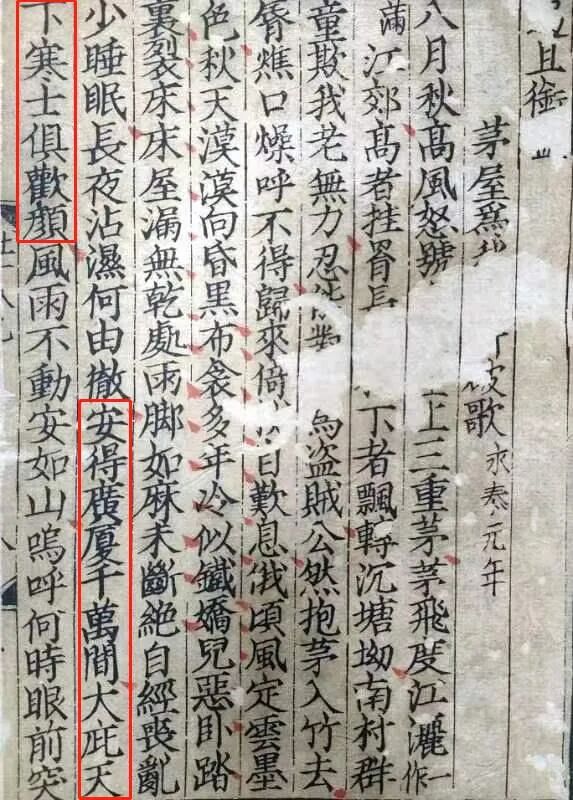 且銜
茅屋爲破歌 永泰元年
八月秋髙風怒號上三重茅茅飛度江灑一作
滿江郊髙者挂罥長下者飄轉沉塘坳南村群
童欺我老無力忍能對爲盗賊公然抱茅入竹去
脣燋口燥呼不得歸來倚杖自歎息俄頃風定雲墨
色秋天漠漠向昏黑布衾多年冷似鐵嬌兒惡卧踏
裏裂床床屋漏無乾處雨脚如麻未斷絶自經喪亂
少睡眠長夜沾濕何由徹安得廣厦千萬間大庇天
下寒士俱歡顔風雨不動安如山嗚呼何時眼前突